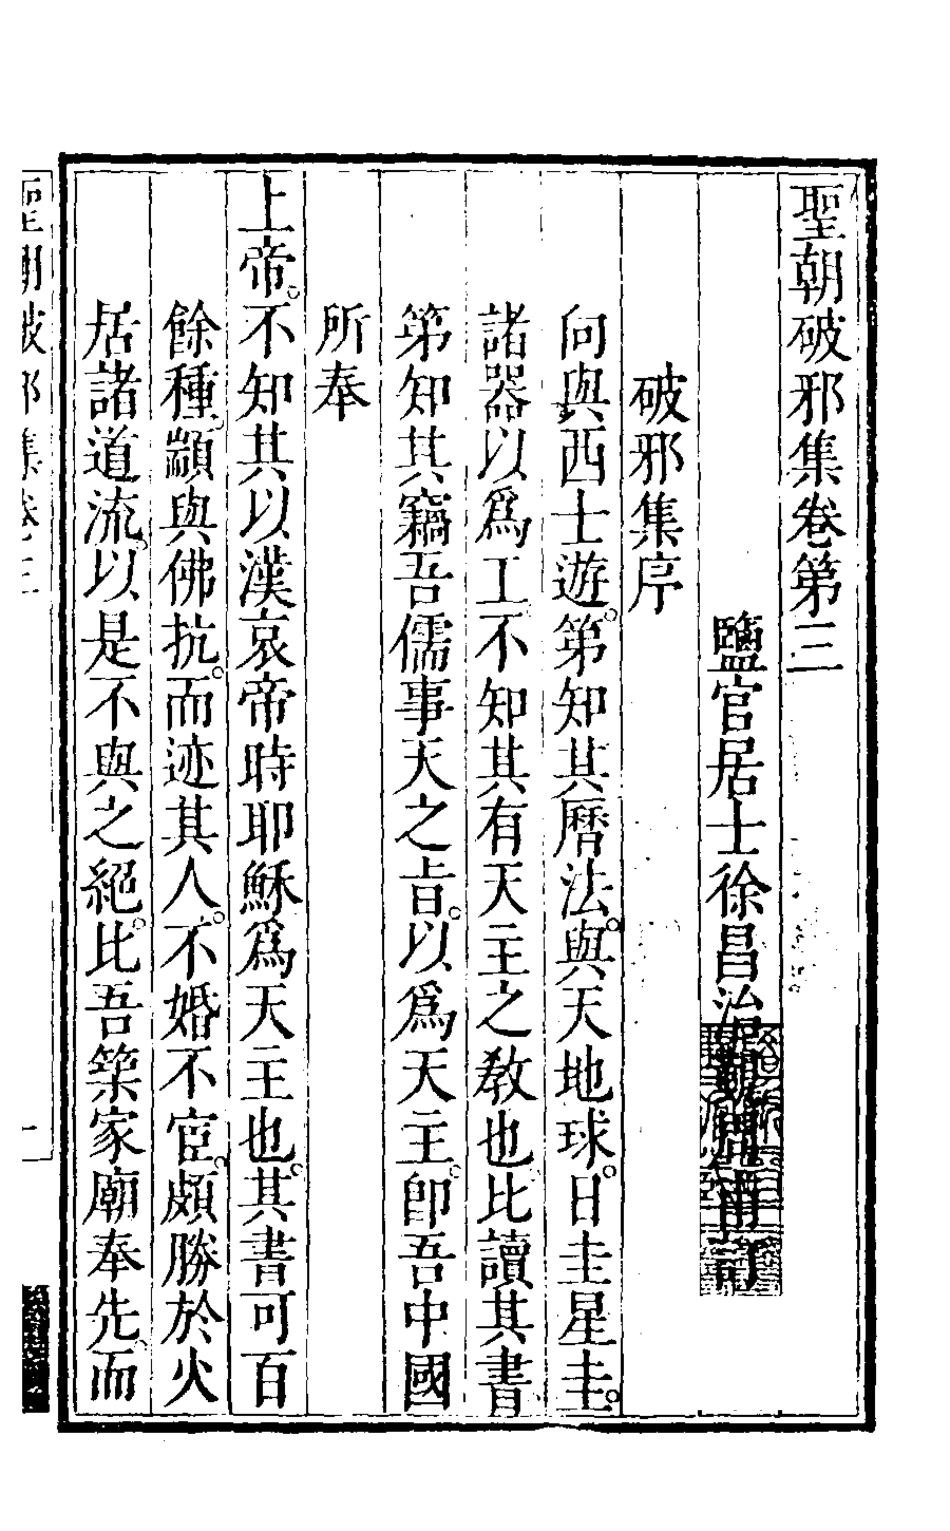 聖朝破邪集卷第三
鹽官居士徐昌治覲周甫訂
破邪集序
向與西士遊。第知其曆法。與天地球。日圭星圭。
諸器以爲工不知其有天主之教也比讀其書
第知其竊吾儒事天之旨。以爲天主。卽吾中國
所奉
上帝。不知其以漢哀帝時耶穌爲天主也。其書可百
餘種。顓與佛抗。而迹其人。不婚不宦。頗勝於火
居諸道流。以是不與之絕。比吾築家廟奉先。而
聖朝破邪集卷三
一